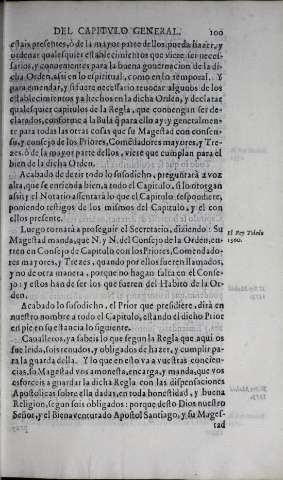 DEL CAPITVLO GENERAL. 100
estais presentes, ò de la mayor parte dellos, pueda hazer, y
ordenar qualesquier establecimientos que viere ser neces-
sarios, y conuenientes para la buena gouernacion de la di-
cha Orden, assi en lo espiritual, como en lo temporal. Y
para emendar, y si fuere necessario reuocar algunos de los
establecimientos ya hechos en la dicha Orden, y declarar
qualesquier capitulos de la Regla, que conuengan ser de-
clarados, conforme a la Bula q̃ para ello ay: y generalmen-
te para todas las otras cosas que su Magestad con consen-
su, y consejo de los Priores, Comẽdadores mayores, y Tre-
zes, ò de la mayor parte dellos, viere que cumplan para el
bien de la dicha Orden.
Acabado de dezir todo lo susodicho, preguntarà a voz
alta, que se entienda bien, a todo el Capitulo, si lo otorgan
assi; y el Notario assentarà lo que el Capitulo respondiere,
poniendo testigos de los mismos del Capitulo, y el con
ellos presente.
Luego tornarà a proseguir el Secretario, diziendo: Su
Magestad manda, que N. y N. del Consejo de la Orden, en-
tren en Consejo de Capitulo con los Priores, Comendado-
res mayores, y Trezes, quando por ellos fueren llamados,
y no de otra manera, porque no hagan falta en el Conse-
jo: y estos han de ser los que fueren del Habito de la Or-
den.
El Rey Toledo
1560.
Acabado lo susodicho, el Prior que presidiere, dirà en
nuestro nombre a todo el Capitulo, estando el dicho Prior
en pie en su estancia lo siguiente.
Caualleros, ya sabeis lo que segun la Regla que aqui os
fue leida, sois tenudos, y obligados de hazer, y cumplir pa-
ra la guarda della. Y lo que en esto va a vuestras concien-
cias, su Magestad vos amonesta, encarga, y manda, que vos
esforceis a guardar la dicha Regla con las dispensaciones
Apostolicas sobre ella dadas, en toda honestidad, y buena
Religion, segun sois obligados: porque desto Dios nuestro
Señor, y el Bienauenturado Apostol Santiago, y su Mages-
tad